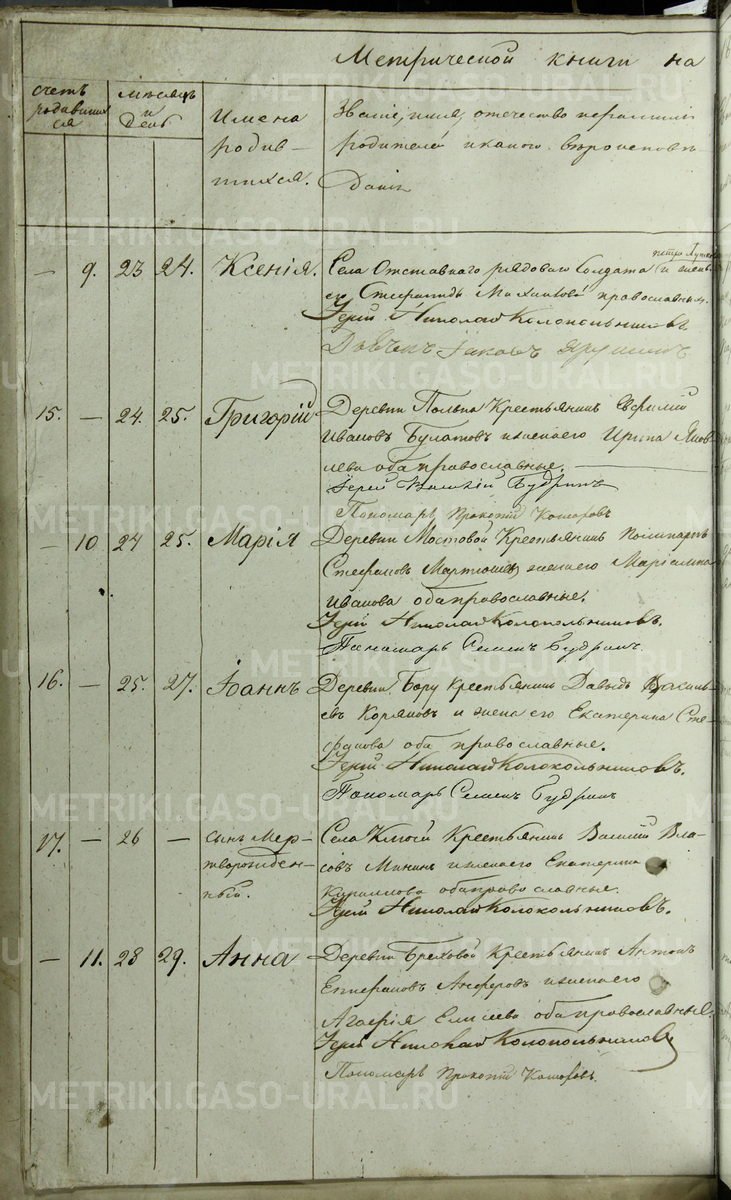 Метрической книги на
счетъ родившихся
месяцъ и день
Имена
родив-
шихся.
Званіе, имя, отечество и фамилія
родителей и какого вѣроисповѣ-
данія
— 9. 23 24. Ксенія. Села Отставнаго рядоваго Солдата и жены
его Михайловой православныя.
Іерей Николай Колокольниковъ
Іаковъ
15. — 24. 25. Григорій Деревни Крестьянинъ
Ивановъ Булатовъ и жена его Ирина Яков-
лева оба православные.
Іерей Василій Будринъ
Пономарь Прокопій
— 10 24 25. Марія Деревни Мостовой Крестьянинъ Поликарпъ
Стефановъ жена его Маріамна
Иванова оба православные.
Іерей Николай Колокольниковъ.
Пономарь Семенъ Будринъ.
16. — 25. 27. Іоаннъ Деревни Бору Крестьянинъ Давыдъ Василь-
евъ и жена его Екатерина Сте-
фанова оба православные.
Іерей Николай Колокольниковъ.
Пономарь Семенъ Будринъ
17. — 26 — сынъ Мер-
творожден-
ный.
Села Ключи Крестьянинъ Василій Вла-
совъ Мининъ и жена его Екатерина
Кириллова оба православные.
Іерей Николай Колокольниковъ.
— 11. 28 29. Анна Деревни Бреховой Крестьянинъ Антонъ
Епифановъ Анферовъ и жена его
Агафія Елисеева оба православные.
Іерей Николай Колокольниковъ
Пономарь Прокопій
METRIKI.GASO-URAL.RU